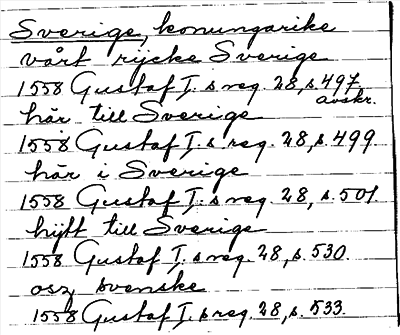 Sverige, konungarike
vårt rycke Sverige
1558 Gustaf I. s reg. 28, s. 497.
avskr.
här till Sverige
1558 Gustaf I. s reg. 28, s. 499
här i Sverige
1558 Gustaf I. s reg. 28, s. 501
hijtt till Sverige
1558 Gustaf I. s reg. 28, s. 530.
osz svenske
1558 Gustaf I. s reg. 28, s. 533.